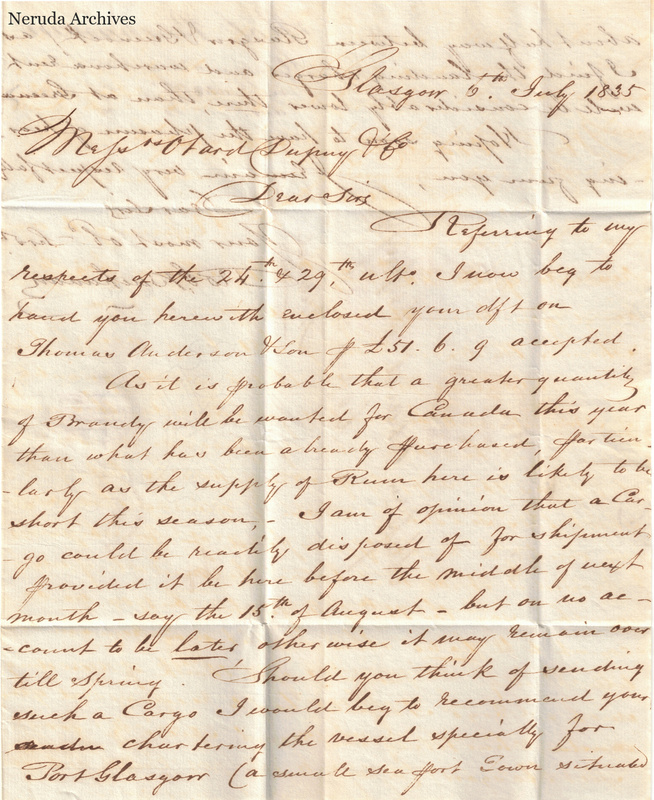 Neruda Archives
Glasgow 3th July 1835
Messrs Otard Dupuy & Co
Dear Sirs
Referring to my
respects of the 24th & 29th ulto. I now beg to
hand you herewith enclosed your dft on
Thomas Anderson & Son p £51. 6. 9 accepted.
As it is probable that a greater quantity
of Brandy will be wanted for Canada this year
than what has been already purchased, particu-
-larly as the supply of Rum here is likely to be
short this season, - I am of opinion that a Car-
-go could be readily disposed of for shipment
provided it be here before the middle of next
month - say the 15th of August - but on no ac-
-count to be later, otherwise it may remain over
till Spring. Should you think of sending
such a Cargo I would beg to recommend your
chartering the vessel specially for
Port Glasgow (a small sea port Town situated